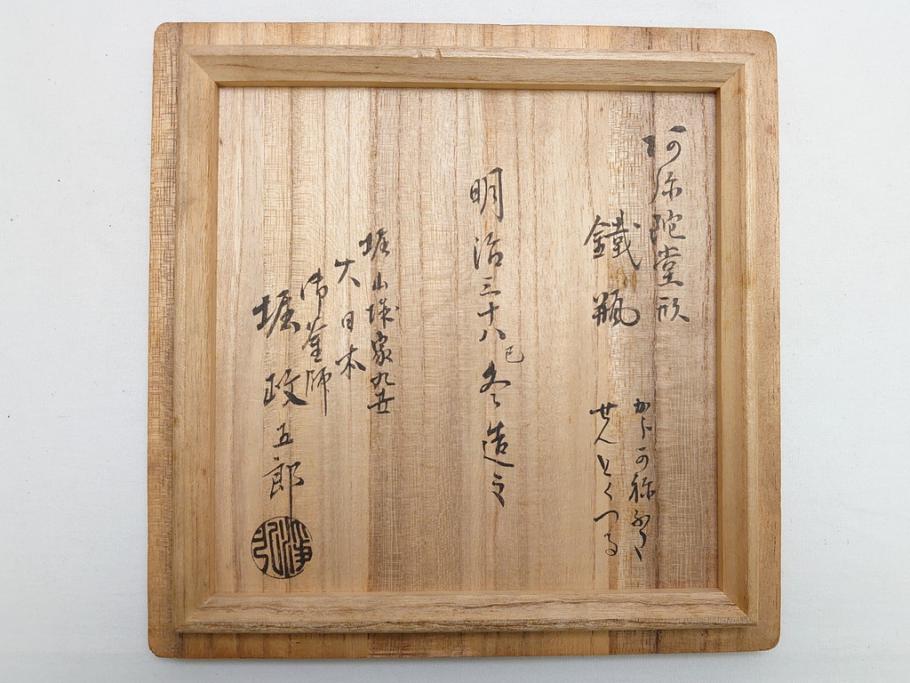 阿弥陀堂形
鐵瓶
からかねふた
せんとくつる
明治三十八巳冬造之
堀山城家九世
大日本
御釜師
堀政五郎
浄